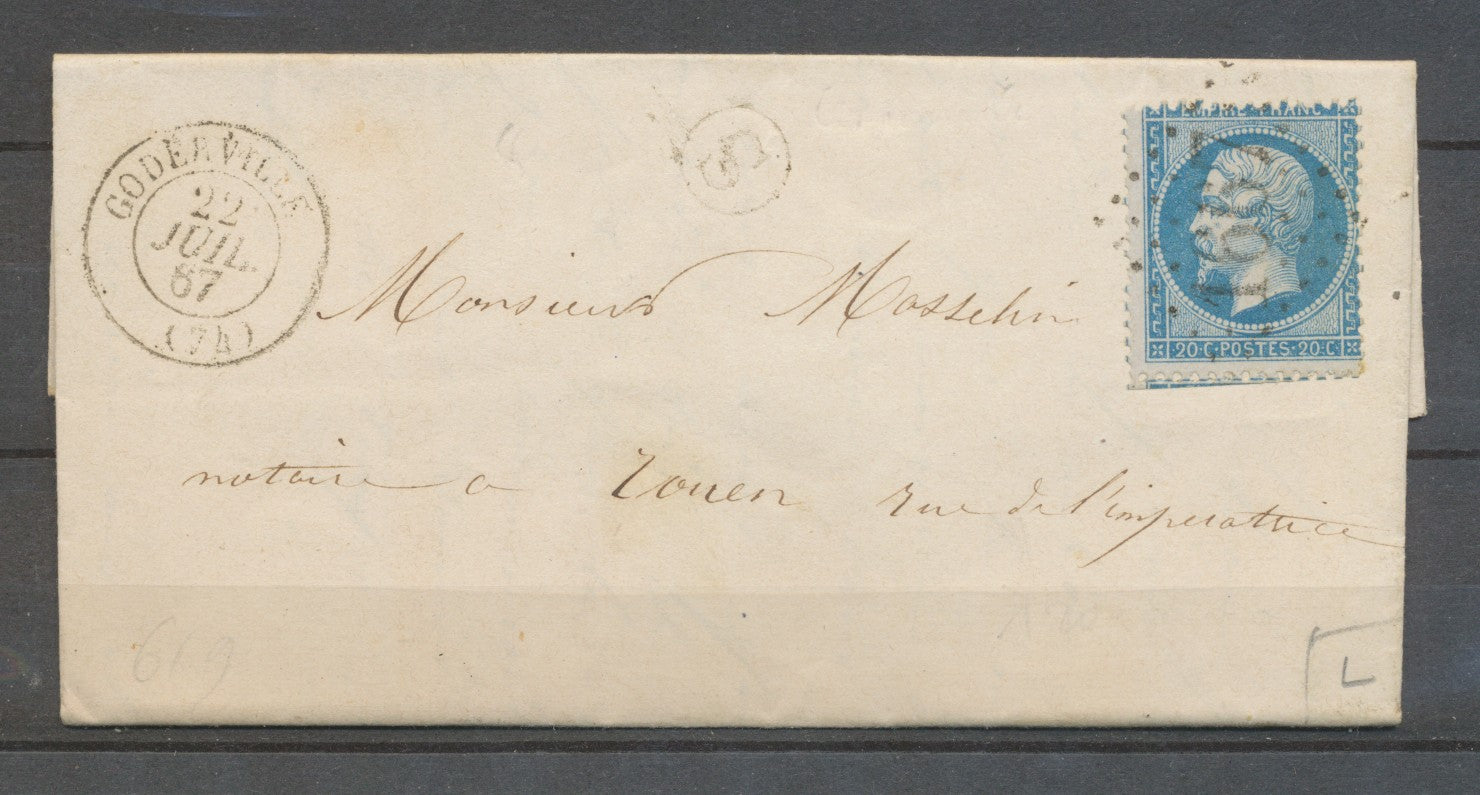 GODERVILLE
22
JUIL.
67
(74)
EMPIRE FRANC
20·C·POSTES·20·C
Monsieur Mosselin
notaire a Rouen rue de l'imperattrice
619
L